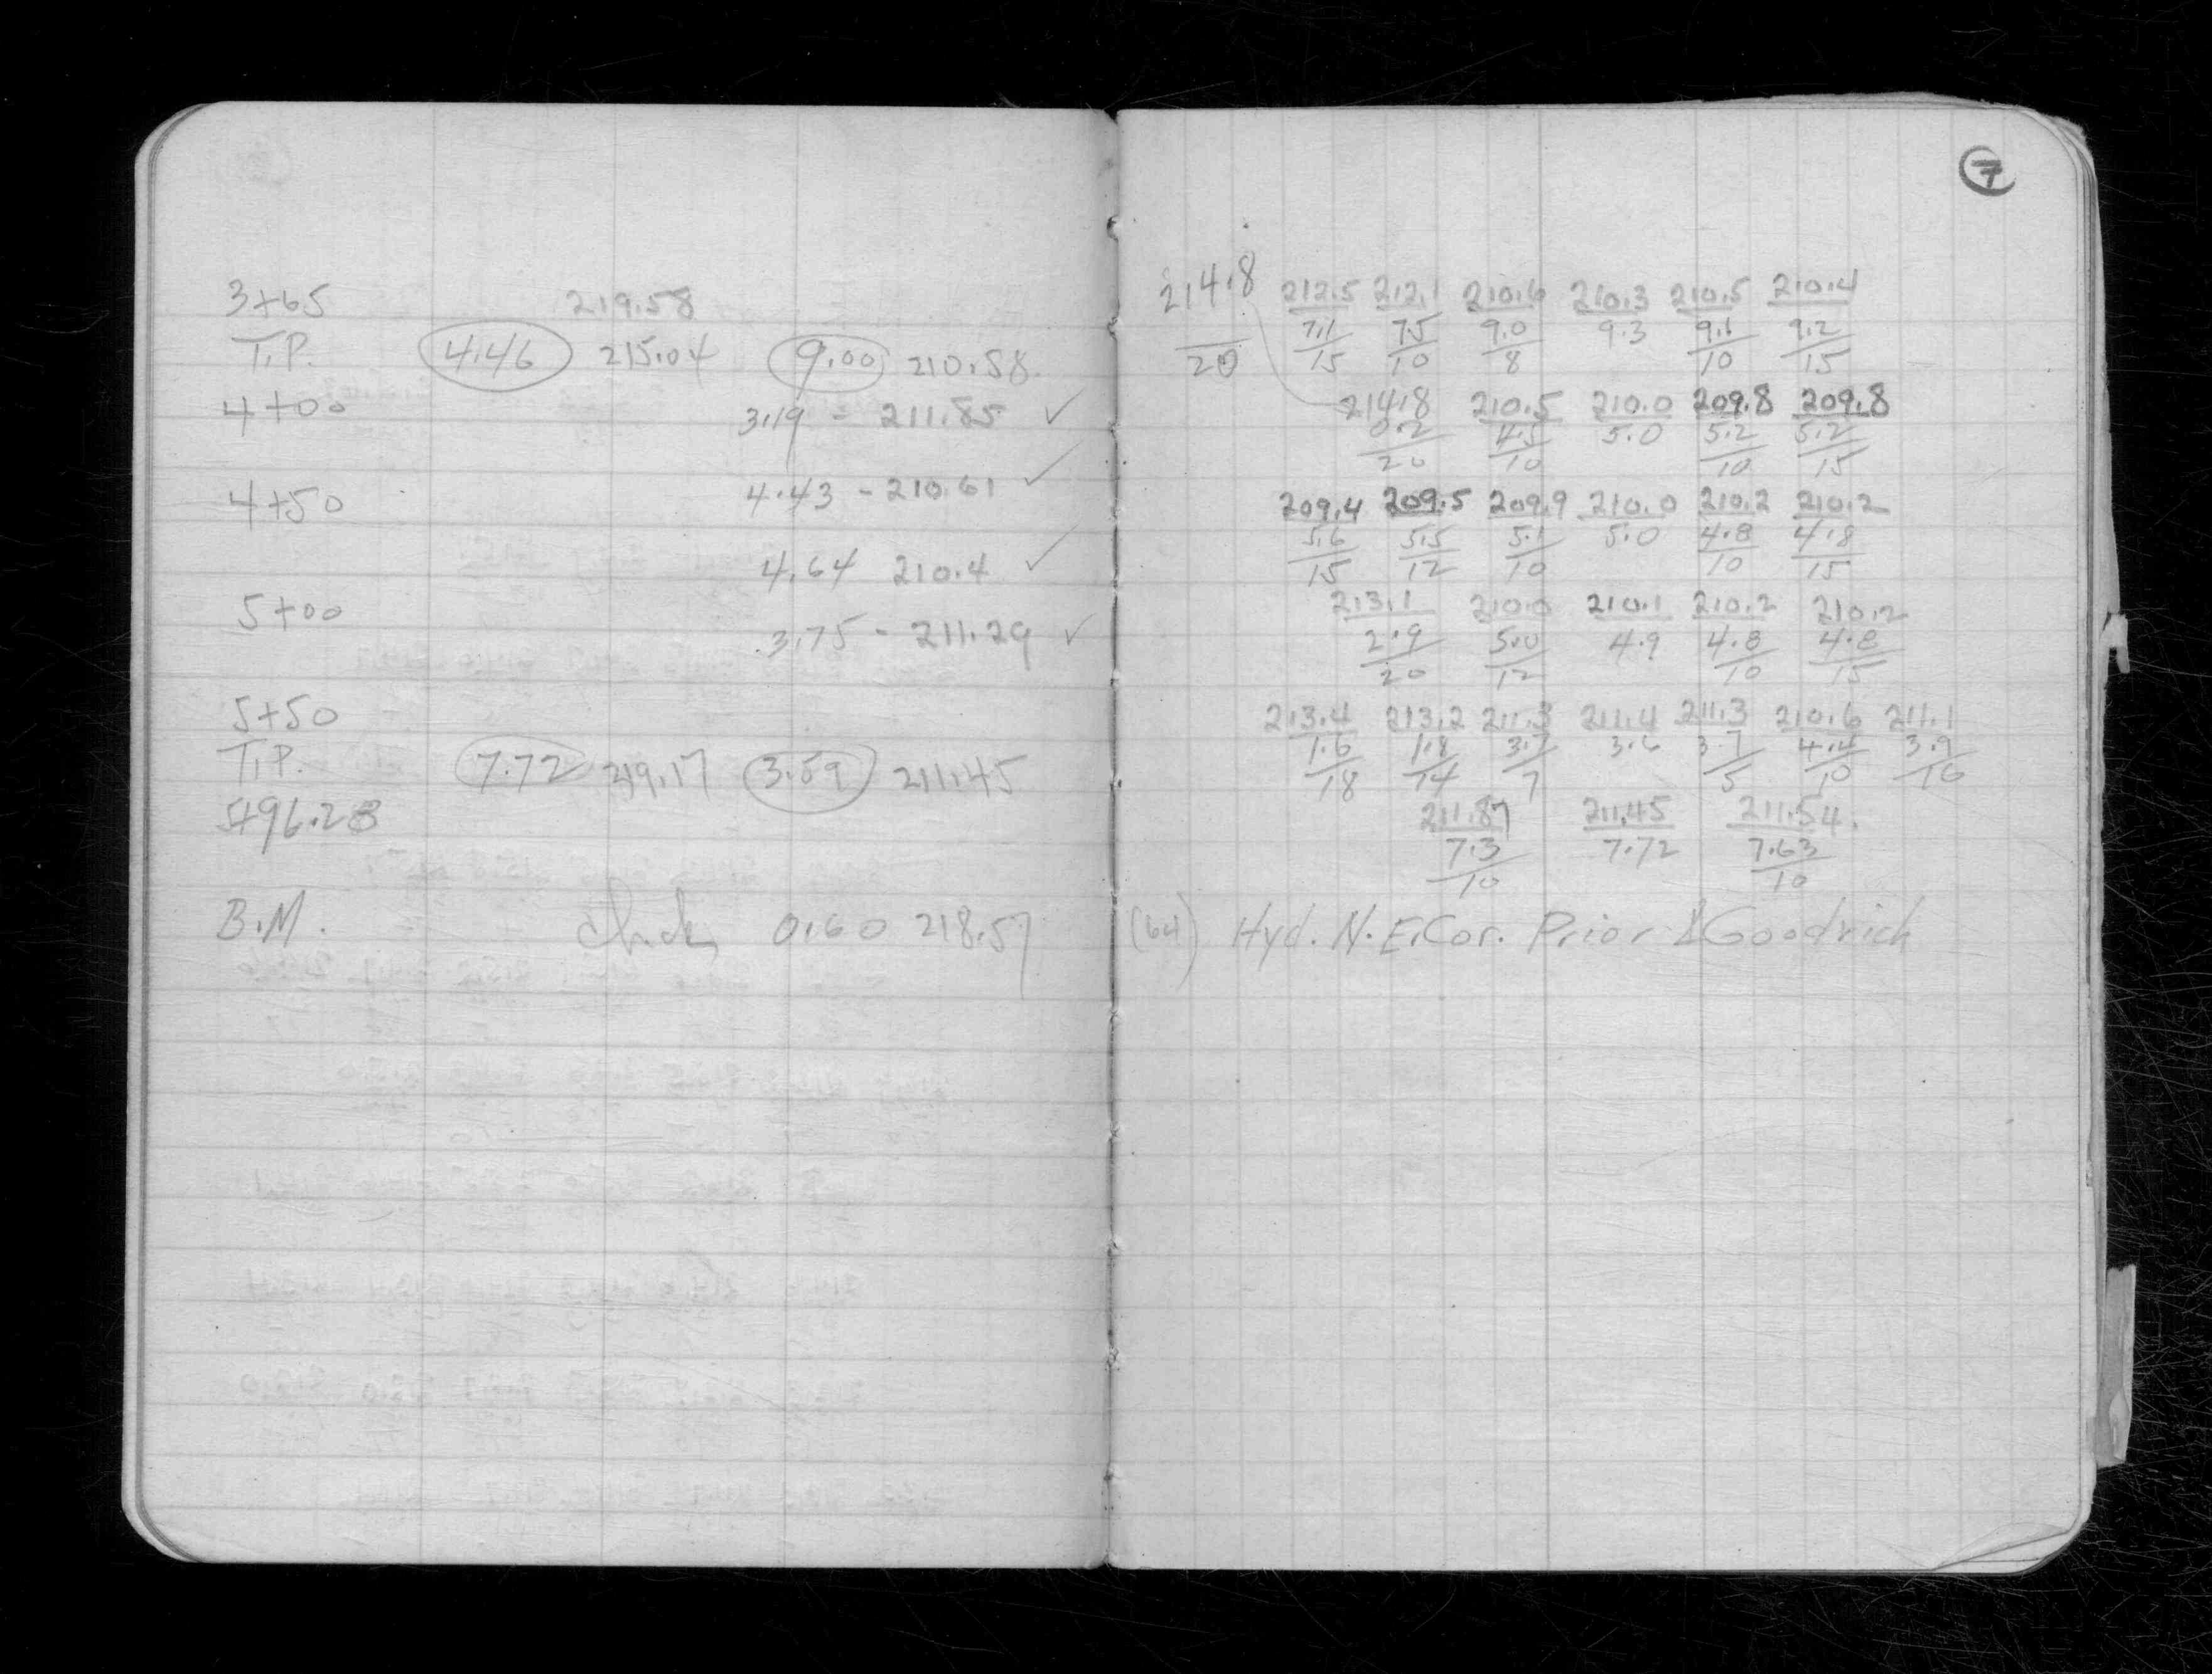 7
3+65 219.58
T.P. 4.46 215.04 9.00 210.58
4+00 3.19 - 211.85 ✓
4+50 4.43 - 210.61 ✓
4.64 210.4 ✓
5+00
3.75 - 211.29 ✓
5+50
T.P. 7.72 219.17 3.59 211.45
5+96.28
B.M. check 0.60 218.57
214.8 212.5 212.1 210.6 210.3 210.5 210.4
7.1 7.5 9.0 9.3 9.1 9.2
20 15 10 8 10 15
214.8 210.5 210.0 209.8 209.8
0.2 4.5 5.0 5.2 5.2
20 10 10 15
209.4 209.5 209.9 210.0 210.2 210.2
5.6 5.5 5.1 5.0 4.8 4.8
15 12 10 10 15
213.1 210.0 210.1 210.2 210.2
2.9 5.0 4.9 4.8 4.8
20 12 10 15
213.4 213.2 211.3 211.4 211.3 210.6 211.1
1.6 1.8 3.7 3.6 3.7 4.4 3.9
18 14 7 5 10 16
211.87 211.45 211.54.
7.3 7.72 7.63
10 10
Hyd. N.E. Cor. Prior & Goodrich